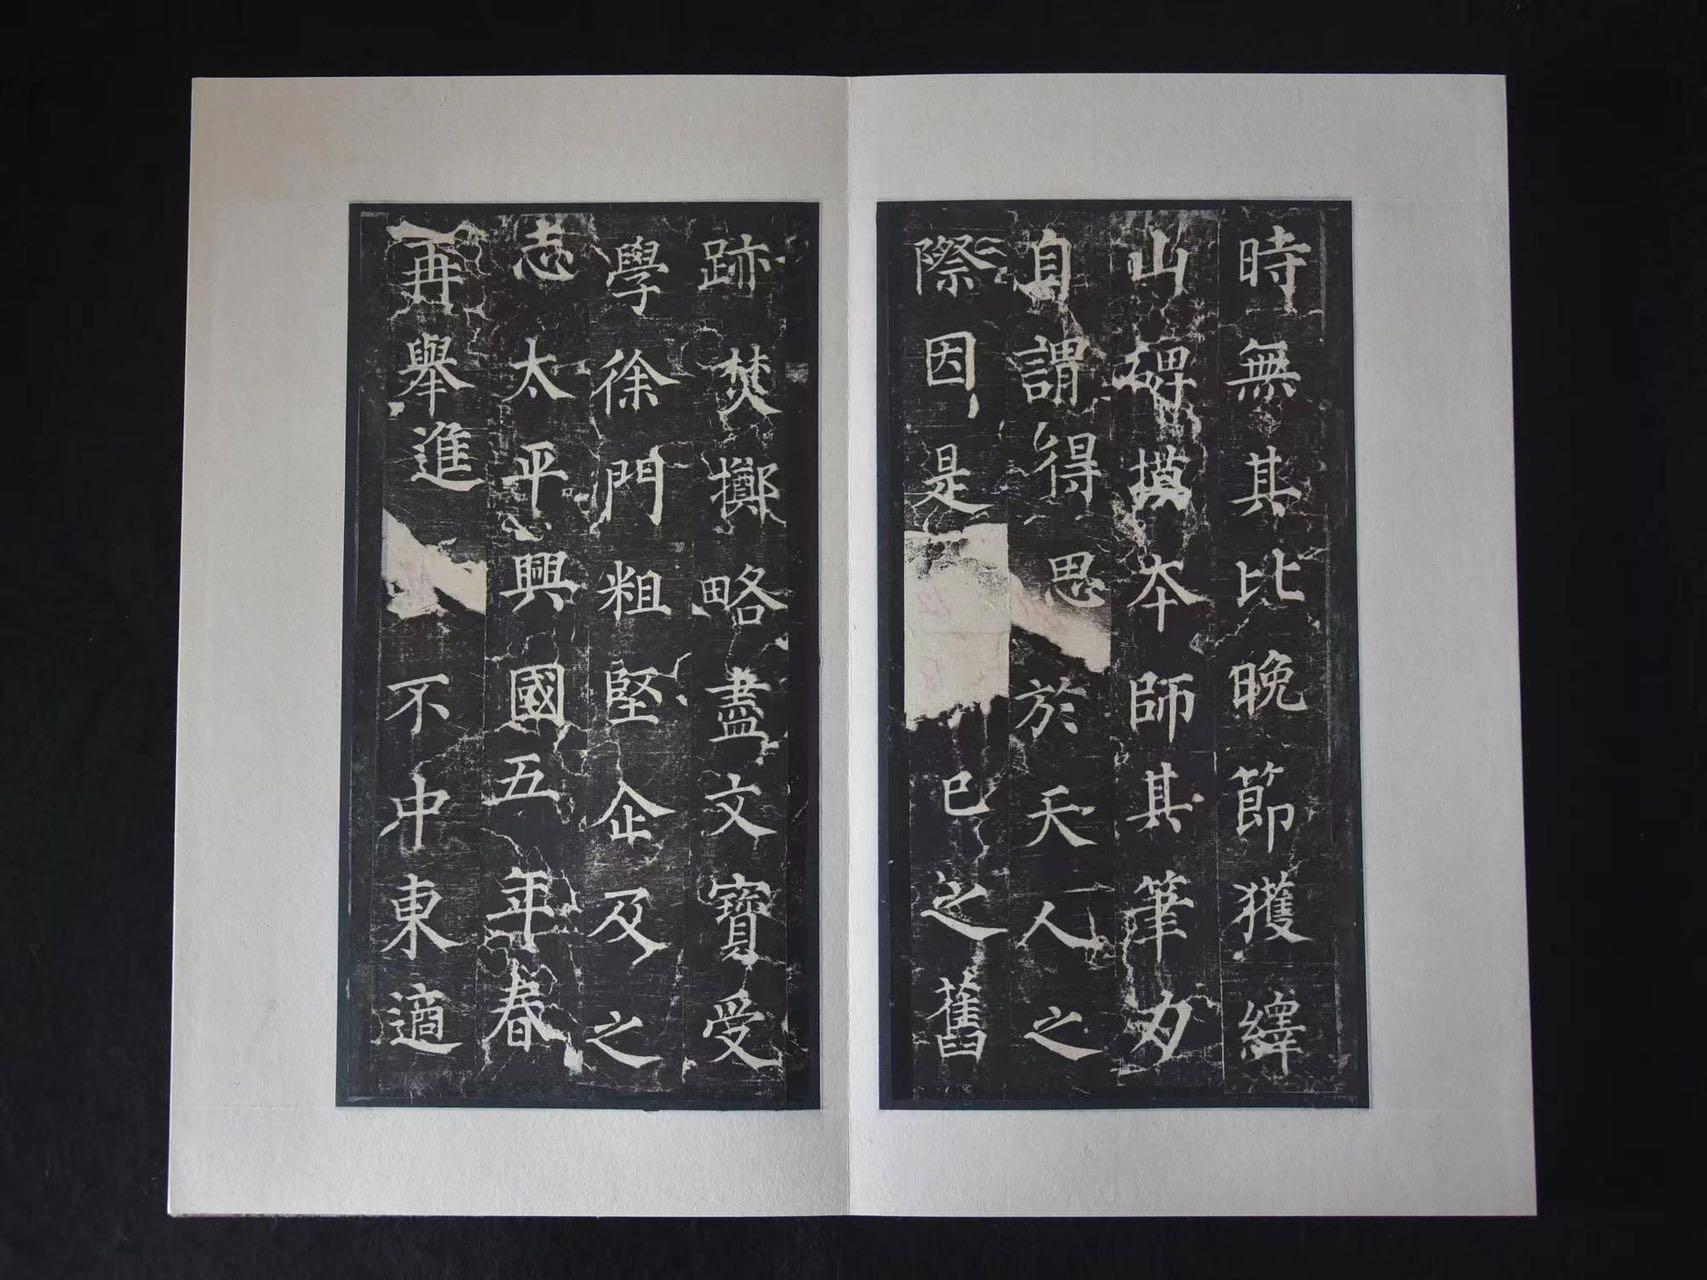 時無其比晚節獲繹
山碑摸本師其筆力
自謂得思於天人之
際因是已之舊
跡焚擲略盡文寶受
學徐門粗堅企及之
志太平興國五年春
再舉進不中東適